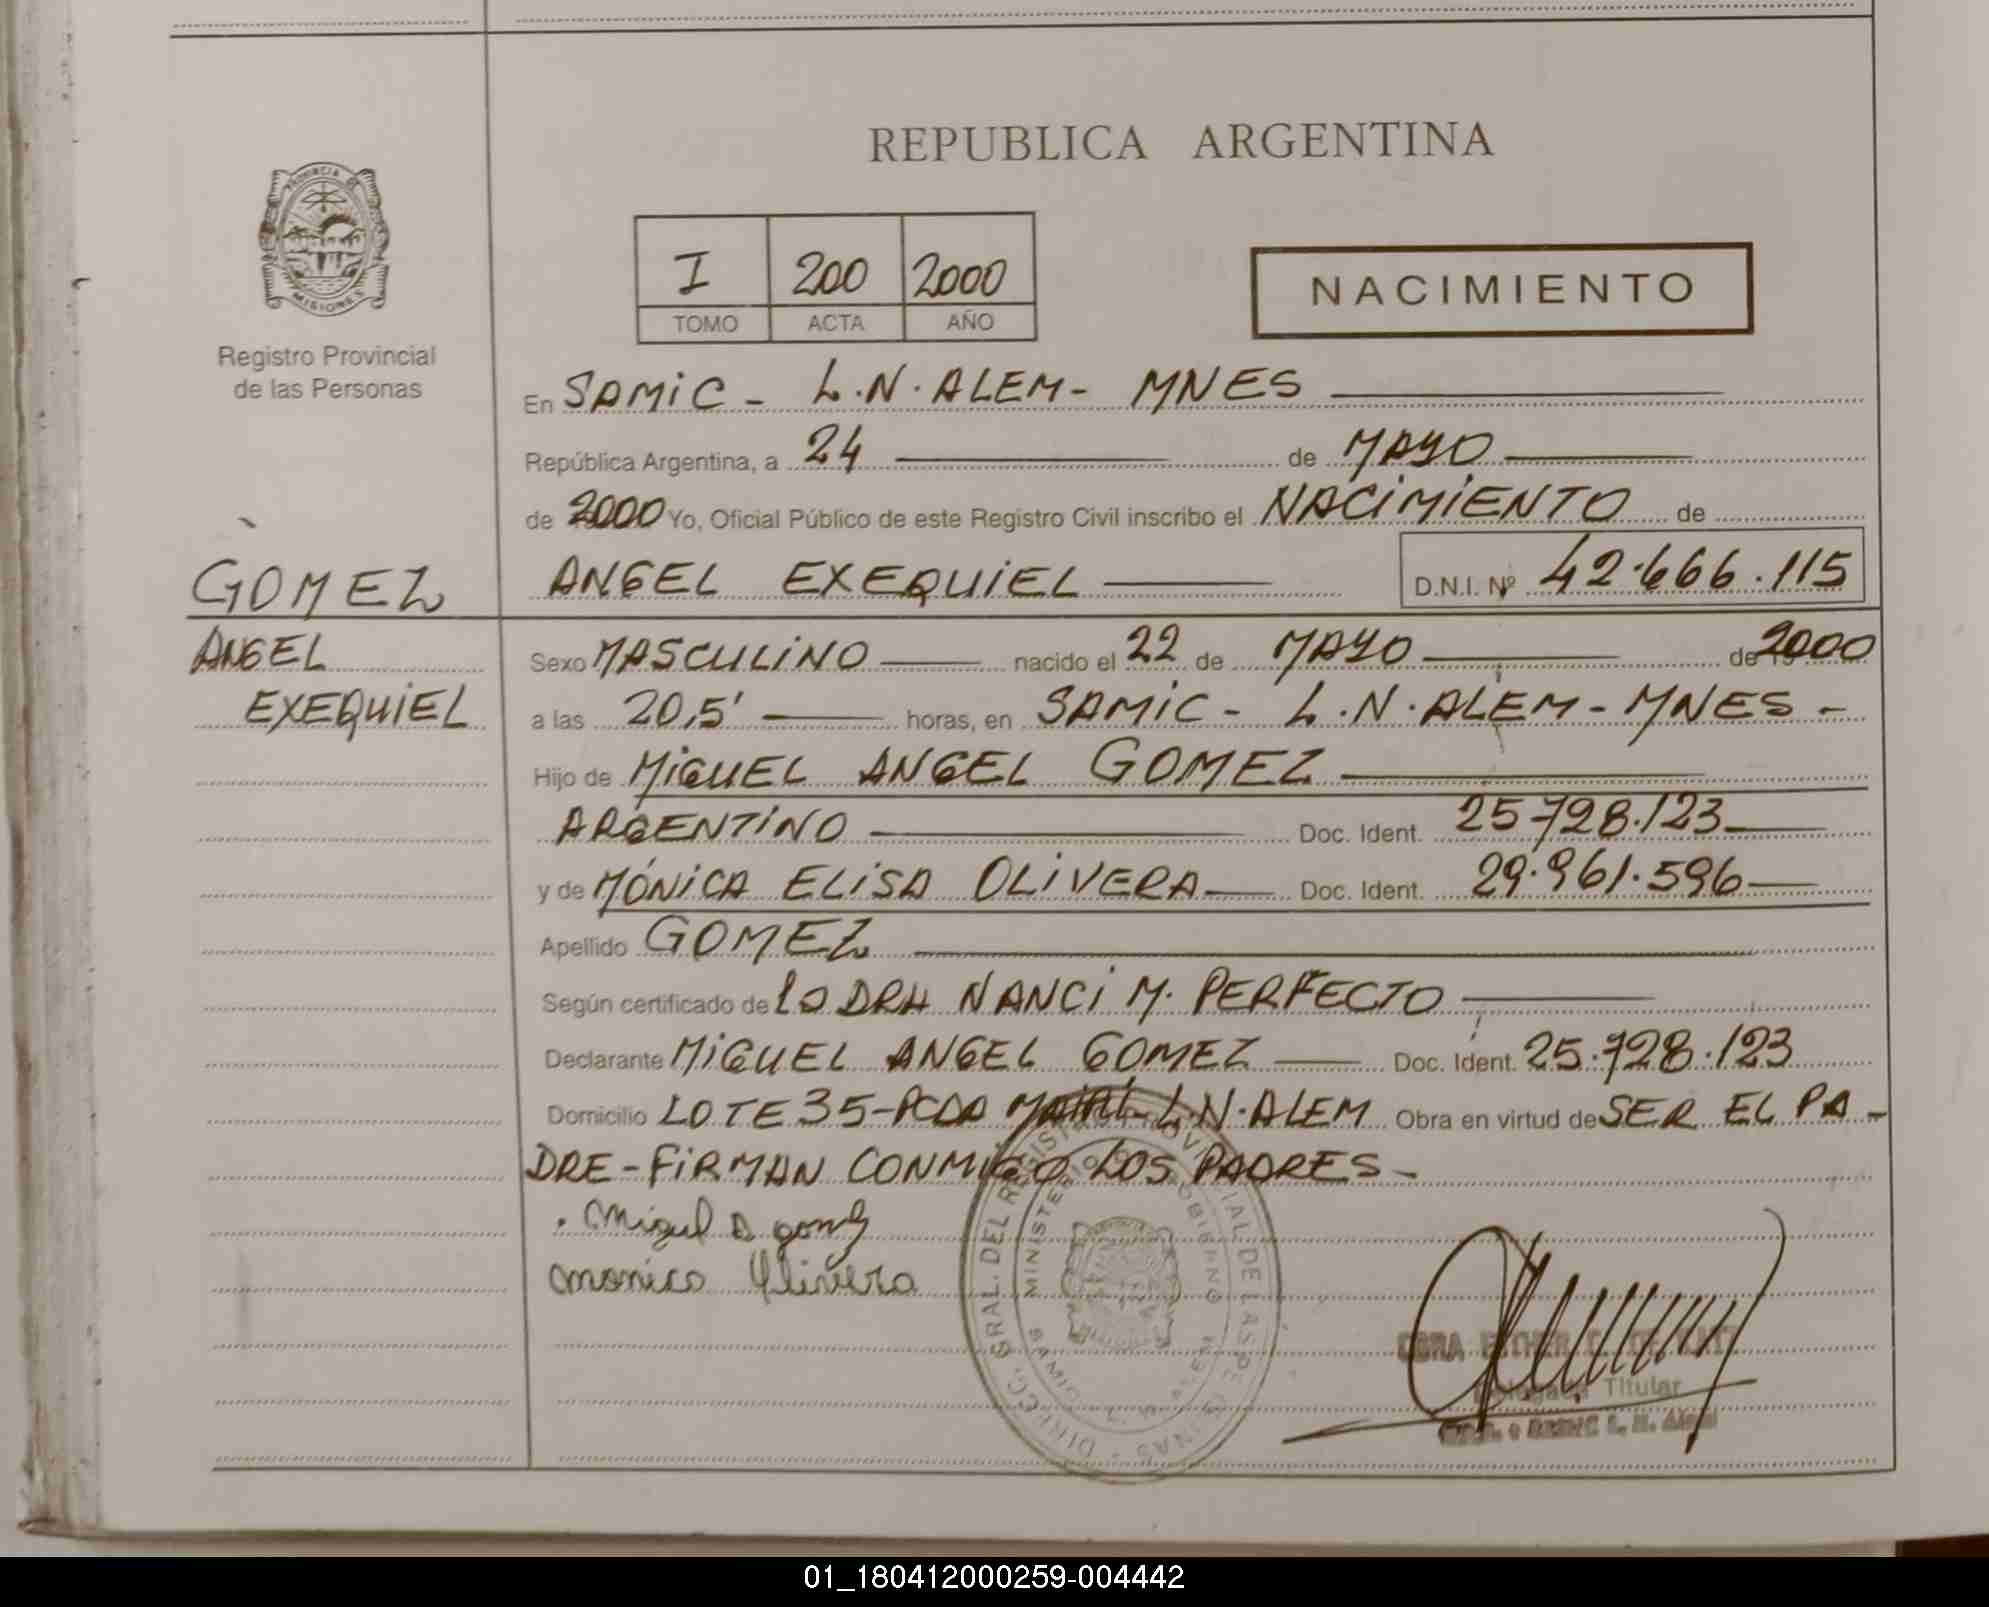 REPUBLICA ARGENTINA
PROVINCIA DE
MISIONES
Registro Provincial
de las Personas
I 200 2000
TOMO ACTA AÑO
NACIMIENTO
En SAMIC - L.N. ALEM - MNES
República Argentina, a 24 de MAYO
de 2000 Yo, Oficial Público de este Registro Civil inscribo el NACIMIENTO de
GOMEZ
ANGEL EXEQUIEL D.N.I. Nº 42.666.115
ANGEL
EXEQUIEL
Sexo MASCULINO nacido el 22 de MAYO de 2000
a las 20,5' horas, en SAMIC - L.N. ALEM - MNES -
Hijo de MIGUEL ANGEL GOMEZ
ARGENTINO Doc. Ident. 25.728.123
y de MÓNICA ELISA OLIVERA Doc. Ident. 29.961.596
Apellido GOMEZ
Según certificado de LA DRA NANCI M. PERFECTO
Declarante MIGUEL ANGEL GOMEZ Doc. Ident. 25.728.123
Domicilio LOTE 35 - PCDA L.N. ALEM Obra en virtud de SER EL PA-
DRE - FIRMAN CONMIGO LOS PADRES -
Miguel A gomez
monica Olivera
DIRECC. GRAL. DEL REGISTRO PROVINCIAL DE LAS PERSONAS
MINISTERIO GOBIERNO
ESTHER
Delegada Titular
L. N. Alem
01_180412000259-004442